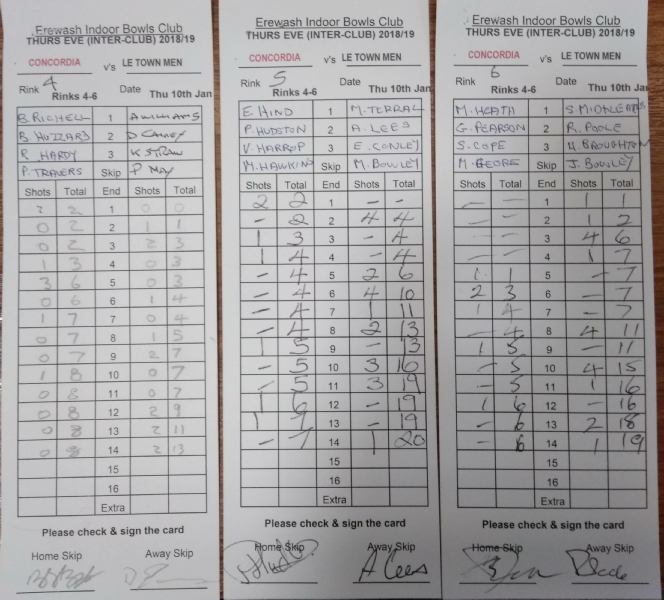 Erewash Indoor Bowls Club
THURS EVE (INTER-CLUB) 2018/19
CONCORDIA v's LE TOWN MEN
Rink 4 Rinks 4-6 Date Thu 10th Jan
B. RICHELL 1 A WILLIAMS
B. HUZZARD 2
R. HARDY 3 K STRAW
P. TRAVERS Skip P MAY
Shots Total End Shots Total
2 2 1 0 0
0 2 2 1 1
0 2 3 2 3
1 3 4 0 3
3 6 5 0 3
0 6 6 1 4
1 7 7 0 4
0 7 8 1 5
0 7 9 2 7
1 8 10 0 7
0 8 11 0 7
0 8 12 2 9
0 8 13 2 11
0 8 14 2 13
15
16
Extra
Please check & sign the card
Home Skip Away Skip
Erewash Indoor Bowls Club
THURS EVE (INTER-CLUB) 2018/19
CONCORDIA v's LE TOWN MEN
Rink 5 Rinks 4-6 Date Thu 10th Jan
E. HIND 1 M. TERRAL
P. HUDSTON 2 A. LEES
V. HARROP 3 E. CONLEY
M. HAWKINS Skip M. BOWLEY
Shots Total End Shots Total
2 2 1 - -
- 2 2 4 4
1 3 3 - 4
1 4 4 - 4
- 4 5 2 6
- 4 6 4 10
- 4 7 1 11
- 4 8 2 13
1 5 9 - 13
- 5 10 3 16
- 5 11 3 19
1 6 12 - 19
1 7 13 - 19
- 7 14 1 20
15
16
Extra
Please check & sign the card
Home Skip Away Skip
A Lees
Erewash Indoor Bowls Club
THURS EVE (INTER-CLUB) 2018/19
CONCORDIA v's LE TOWN MEN
Rink 6 Rinks 4-6 Date Thu 10th Jan
M. HEATH 1
G. PEARSON 2 R. POOLE
S. COPE 3 H. BROUGHTON
M. GEORE Skip J. BOWLEY
Shots Total End Shots Total
- - 1 1 1
- - 2 1 2
- - 3 4 6
- - 4 1 7
1 1 5 - 7
2 3 6 - 7
1 4 7 - 7
- 4 8 4 11
1 5 9 - 11
- 5 10 4 15
- 5 11 1 16
1 6 12 - 16
- 6 13 2 18
- 6 14 1 19
15
16
Extra
Please check & sign the card
Home Skip Away Skip